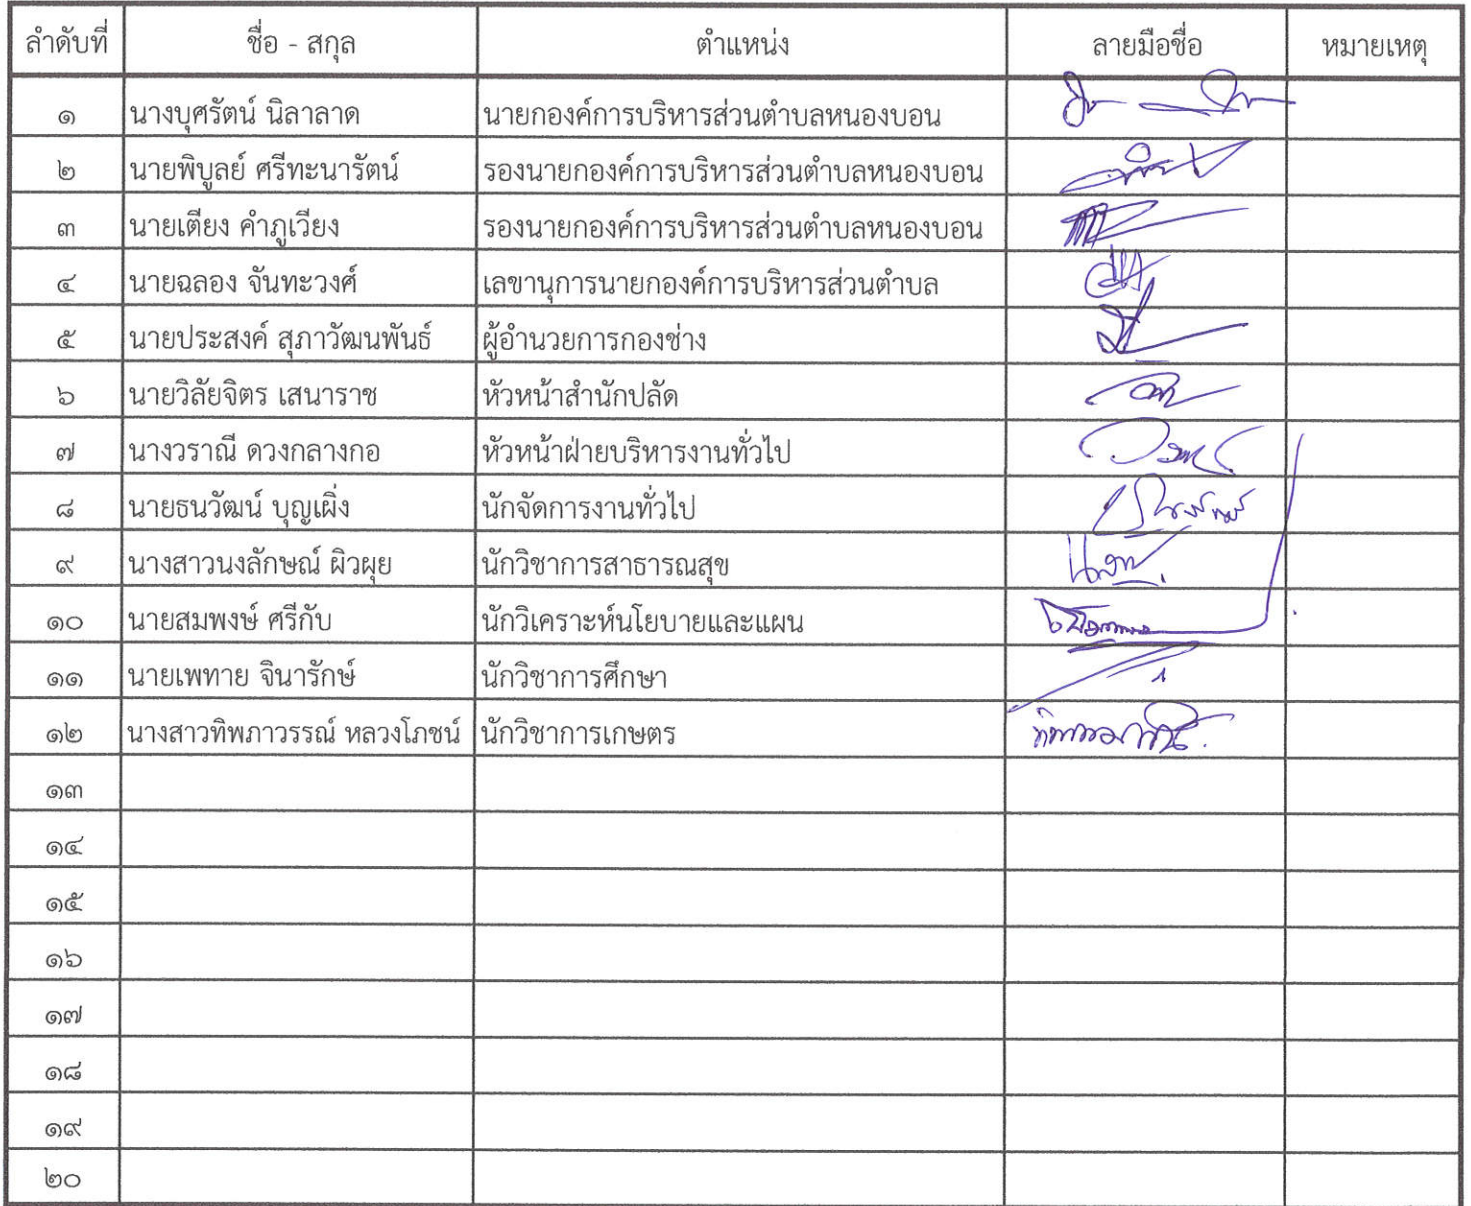 ลำดับที่ ชื่อ - สกุล ตำแหน่ง ลายมือชื่อ หมายเหตุ
๑ นางบุศรัตน์ นิลาลาด นายกองค์การบริหารส่วนตำบลหนองบอน
๒ นายพิบูลย์ ศรีทะนารัตน์ รองนายกองค์การบริหารส่วนตำบลหนองบอน
๓ นายเตียง คำภูเวียง รองนายกองค์การบริหารส่วนตำบลหนองบอน
๔ นายฉลอง จันทะวงศ์ เลขานุการนายกองค์การบริหารส่วนตำบล
๕ นายประสงค์ สุภาวัฒนพันธ์ ผู้อำนวยการกองช่าง
๖ นายวิลัยจิตร เสนาราช หัวหน้าสำนักปลัด
๗ นางวราณี ดวงกลางกอ หัวหน้าฝ่ายบริหารงานทั่วไป
๘ นายธนวัฒน์ บุญเผิ่ง นักจัดการงานทั่วไป
๙ นางสาวนงลักษณ์ ผิวผุย นักวิชาการสาธารณสุข
๑๐ นายสมพงษ์ ศรีกับ นักวิเคราะห์นโยบายและแผน
๑๑ นายเพทาย จินารักษ์ นักวิชาการศึกษา
๑๒ นางสาวทิพภาวรรณ์ หลวงโภชน์ นักวิชาการเกษตร
๑๓
๑๔
๑๕
๑๖
๑๗
๑๘
๑๙
๒๐